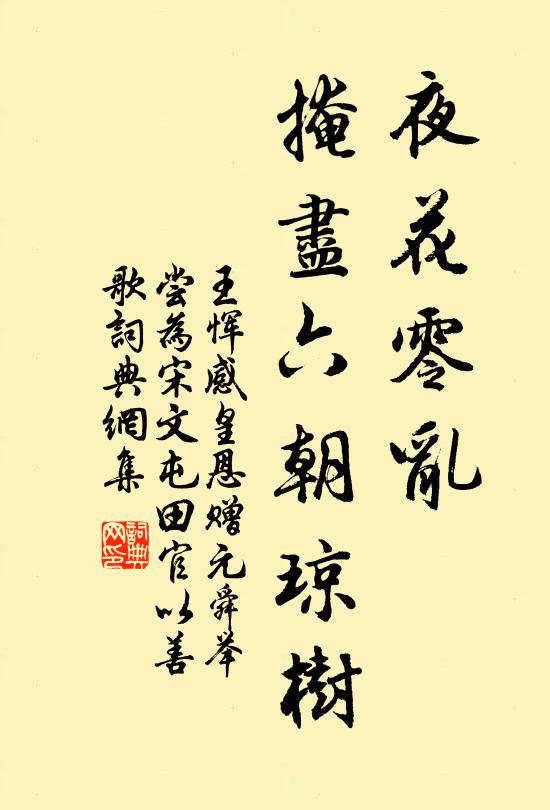 夜花零亂
掩盡六朝琼樹
王恽感皇恩赠元舜举
尝為宋文屯田官以善
歌詞典網集
詞典网印